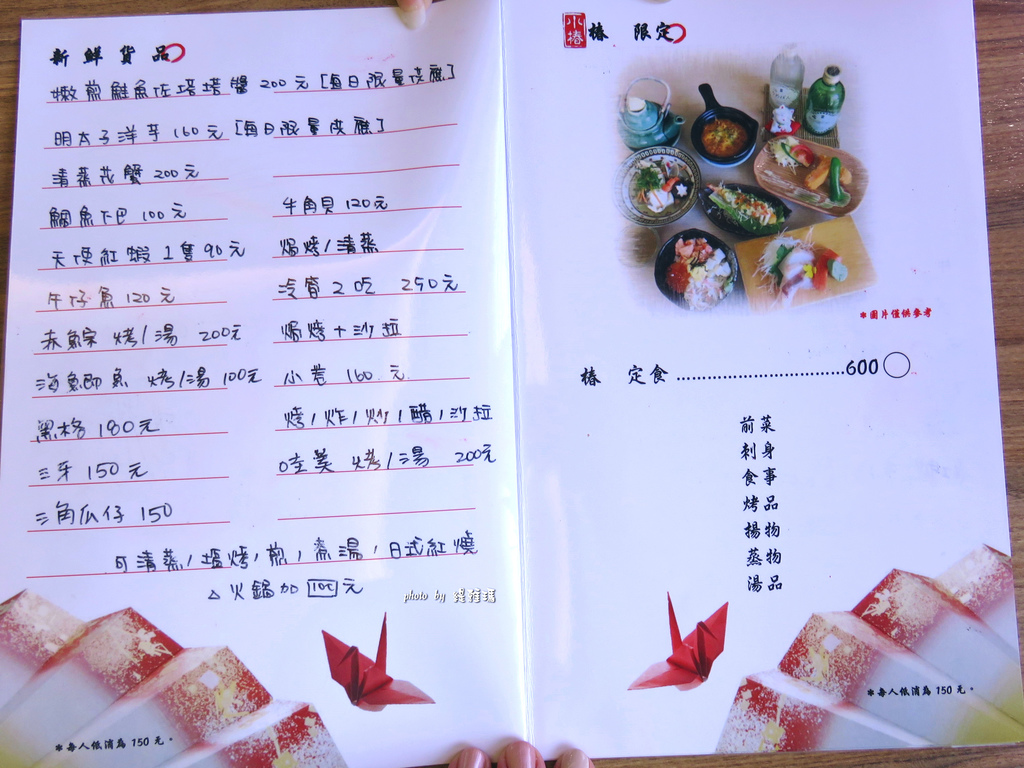 新鮮貨品
嫩煎鮭魚佐塔塔醬 200元 [每日限量供應]
明太子洋芋 160元 [每日限量供應]
清蒸花蟹 200元
鯛魚下巴 100元
天使紅蝦 1隻 90元
午仔魚 120元
赤鯮 烤/湯 200元
海鯽魚 烤/湯 100元
黑格 180元
三牙 150元
三角瓜仔 150
牛角貝 120元
焗烤/清蒸
2吃 250元
焗烤+沙拉
小卷 160元
烤/炸/炒/醋/沙拉
烤/湯 200元
可清蒸/塩烤/煎/煮湯/日式紅燒
△火鍋加100元
photo by
*每人低消為 150 元。
小椿
椿 限定
*圖片僅供參考
椿 定食..............................600
前菜
刺身
食事
烤品
揚物
蒸物
湯品
*每人低消為 150 元。